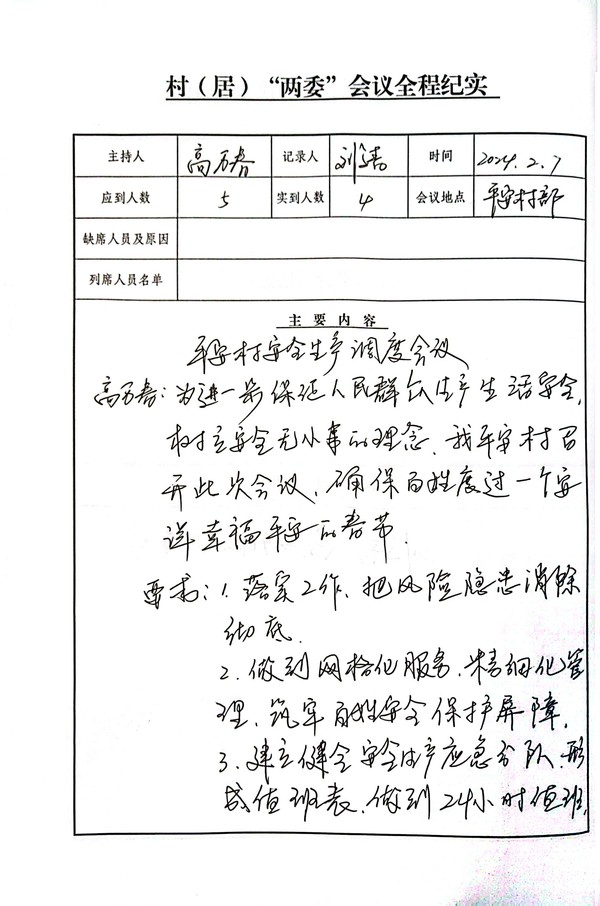 村（居）“两委”会议全程纪实
主持人 高万春 记录人 刘洁 时间 2024.2.7
应到人数 5 实到人数 4 会议地点 平安村部
缺席人员及原因
列席人员名单
主要内容
平安村安全生产调度会议
高万春：为进一步保证人民群众生产生活安全，
树立安全无小事的理念，我平安村召
开此次会议，确保百姓度过一个安
详幸福平安的春节.
要求：1.落实工作，把风险隐患消除
彻底.
2.做到网格化服务，精细化管
理，筑牢百姓安全保护屏障.
3.建立健全安全生产应急分队，形
成值班表，做到24小时值班，